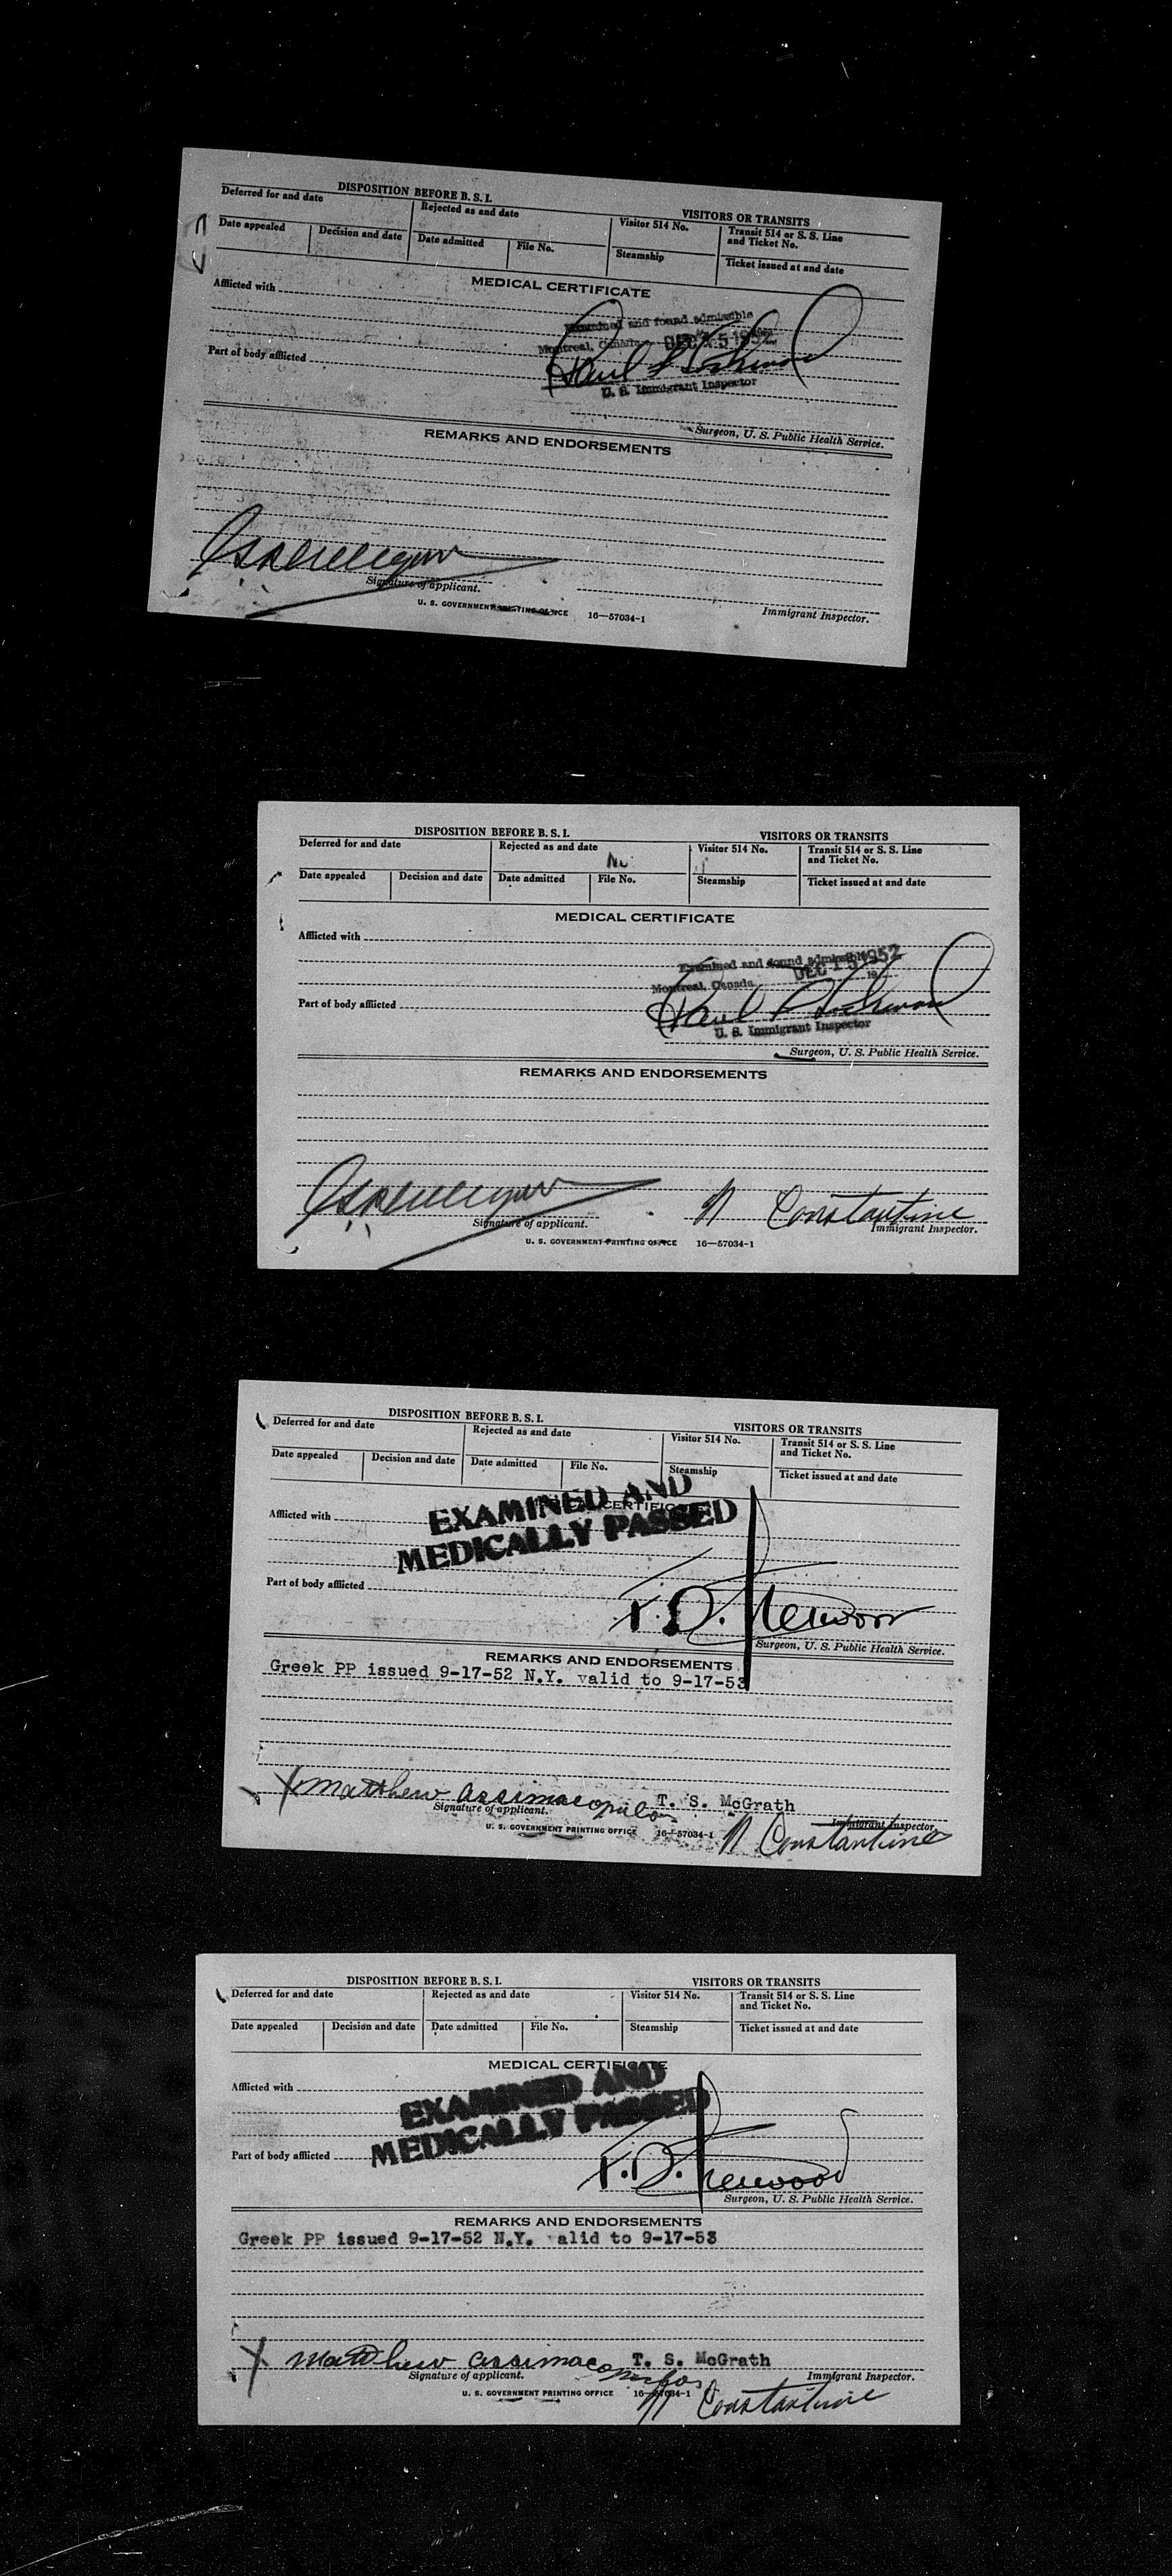 DISPOSITION BEFORE B. S. I.
VISITORS OR TRANSITS
Deferred for and date
Rejected as and date
Visitor 514 No.
Transit 514 or S. S. Line
and Ticket No.
Date appealed
Decision and date
Date admitted
File No.
Steamship
Ticket issued at and date
MEDICAL CERTIFICATE
Afflicted with
Examined and found admissible
Montreal, Canada DEC 15 1952
Part of body afflicted
Paul
U. S. Immigrant Inspector
Surgeon, U. S. Public Health Service.
REMARKS AND ENDORSEMENTS
Signature of applicant.
U. S. GOVERNMENT PRINTING OFFICE 16—57034-1
Immigrant Inspector.
DISPOSITION BEFORE B. S. I.
VISITORS OR TRANSITS
Deferred for and date
Rejected as and date
Visitor 514 No.
Transit 514 or S. S. Line
and Ticket No.
Date appealed
Decision and date
Date admitted
File No.
Steamship
Ticket issued at and date
MEDICAL CERTIFICATE
Afflicted with
Examined and found admissible
Montreal, Canada DEC 15 1952 19
Part of body afflicted
Paul
U. S. Immigrant Inspector
Surgeon, U. S. Public Health Service.
REMARKS AND ENDORSEMENTS
N Constantine
Signature of applicant.
Immigrant Inspector.
U. S. GOVERNMENT PRINTING OFFICE 16—57034-1
DISPOSITION BEFORE B. S. I.
VISITORS OR TRANSITS
Deferred for and date
Rejected as and date
Visitor 514 No.
Transit 514 or S. S. Line
and Ticket No.
Date appealed
Decision and date
Date admitted
File No.
Steamship
Ticket issued at and date
MEDICAL CERTIFICATE
EXAMINED AND
MEDICALLY PASSED
Afflicted with
Part of body afflicted
Surgeon, U. S. Public Health Service.
REMARKS AND ENDORSEMENTS
Greek PP issued 9-17-52 N.Y. valid to 9-17-53
X Matthew Assimacopoulos
T. S. McGrath
Signature of applicant.
Immigrant Inspector.
U. S. GOVERNMENT PRINTING OFFICE 16—57034-1
N Constantine
DISPOSITION BEFORE B. S. I.
VISITORS OR TRANSITS
Deferred for and date
Rejected as and date
Visitor 514 No.
Transit 514 or S. S. Line
and Ticket No.
Date appealed
Decision and date
Date admitted
File No.
Steamship
Ticket issued at and date
MEDICAL CERTIFICATE
EXAMINED AND
MEDICALLY PASSED
Afflicted with
Part of body afflicted
Surgeon, U. S. Public Health Service.
REMARKS AND ENDORSEMENTS
Greek PP issued 9-17-52 N.Y. valid to 9-17-53
X Matthew Assimacopoulos
T. S. McGrath
Signature of applicant.
Immigrant Inspector.
U. S. GOVERNMENT PRINTING OFFICE 16—57034-1
N Constantine